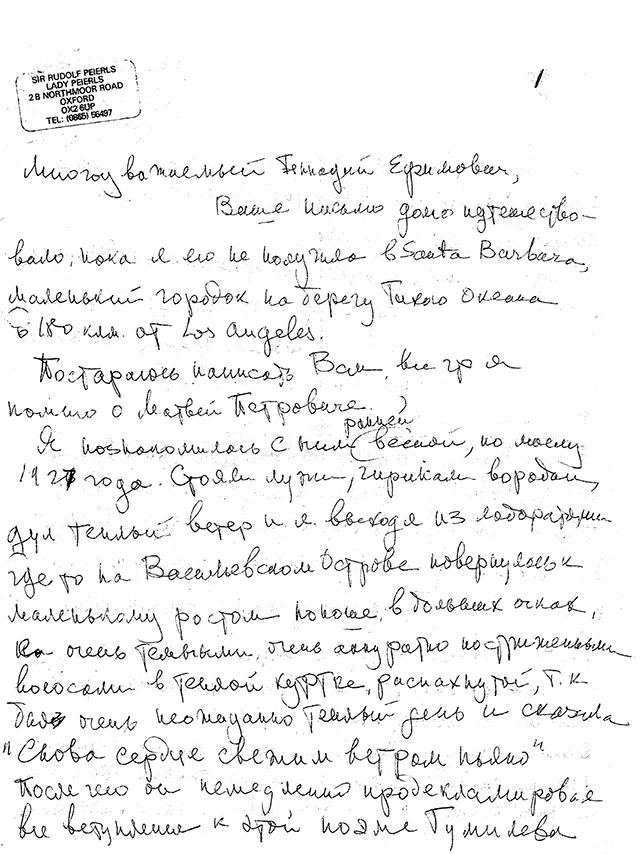 SIR RUDOLF PEIERLS
LADY PEIERLS
2B NORTHMOOR ROAD
OXFORD
OX2 6UP
TEL: (0865) 56497
1
Многоуважаемый Геннадий Ефимович,
Ваше письмо долго путешество-
вало, пока я его не получила в Santa Barbara,
маленький городок на берегу Тихого Океана
в 180 клм. от Los Angeles.
Постараюсь написать Вам, все что я
помню о Матвей Петровиче.
ранней
Я познакомилась с ним весной, по моему
1927 года. Стояли лужи, чирикали воробьи,
дул теплый ветер и я выходя из лаборатории
где то на Васильевском Острове повернулась к
маленькому ростом юноше, в больших очках,
очень темными, очень аккуратно постриженными
волосами в теплой куртке, распахнутой, т.к
был очень неожиданно теплый день и сказала
"Снова сердце свежим ветром пьяно"
После чего он немедленно продекламировал
все вступление к этой поэме Гумилева